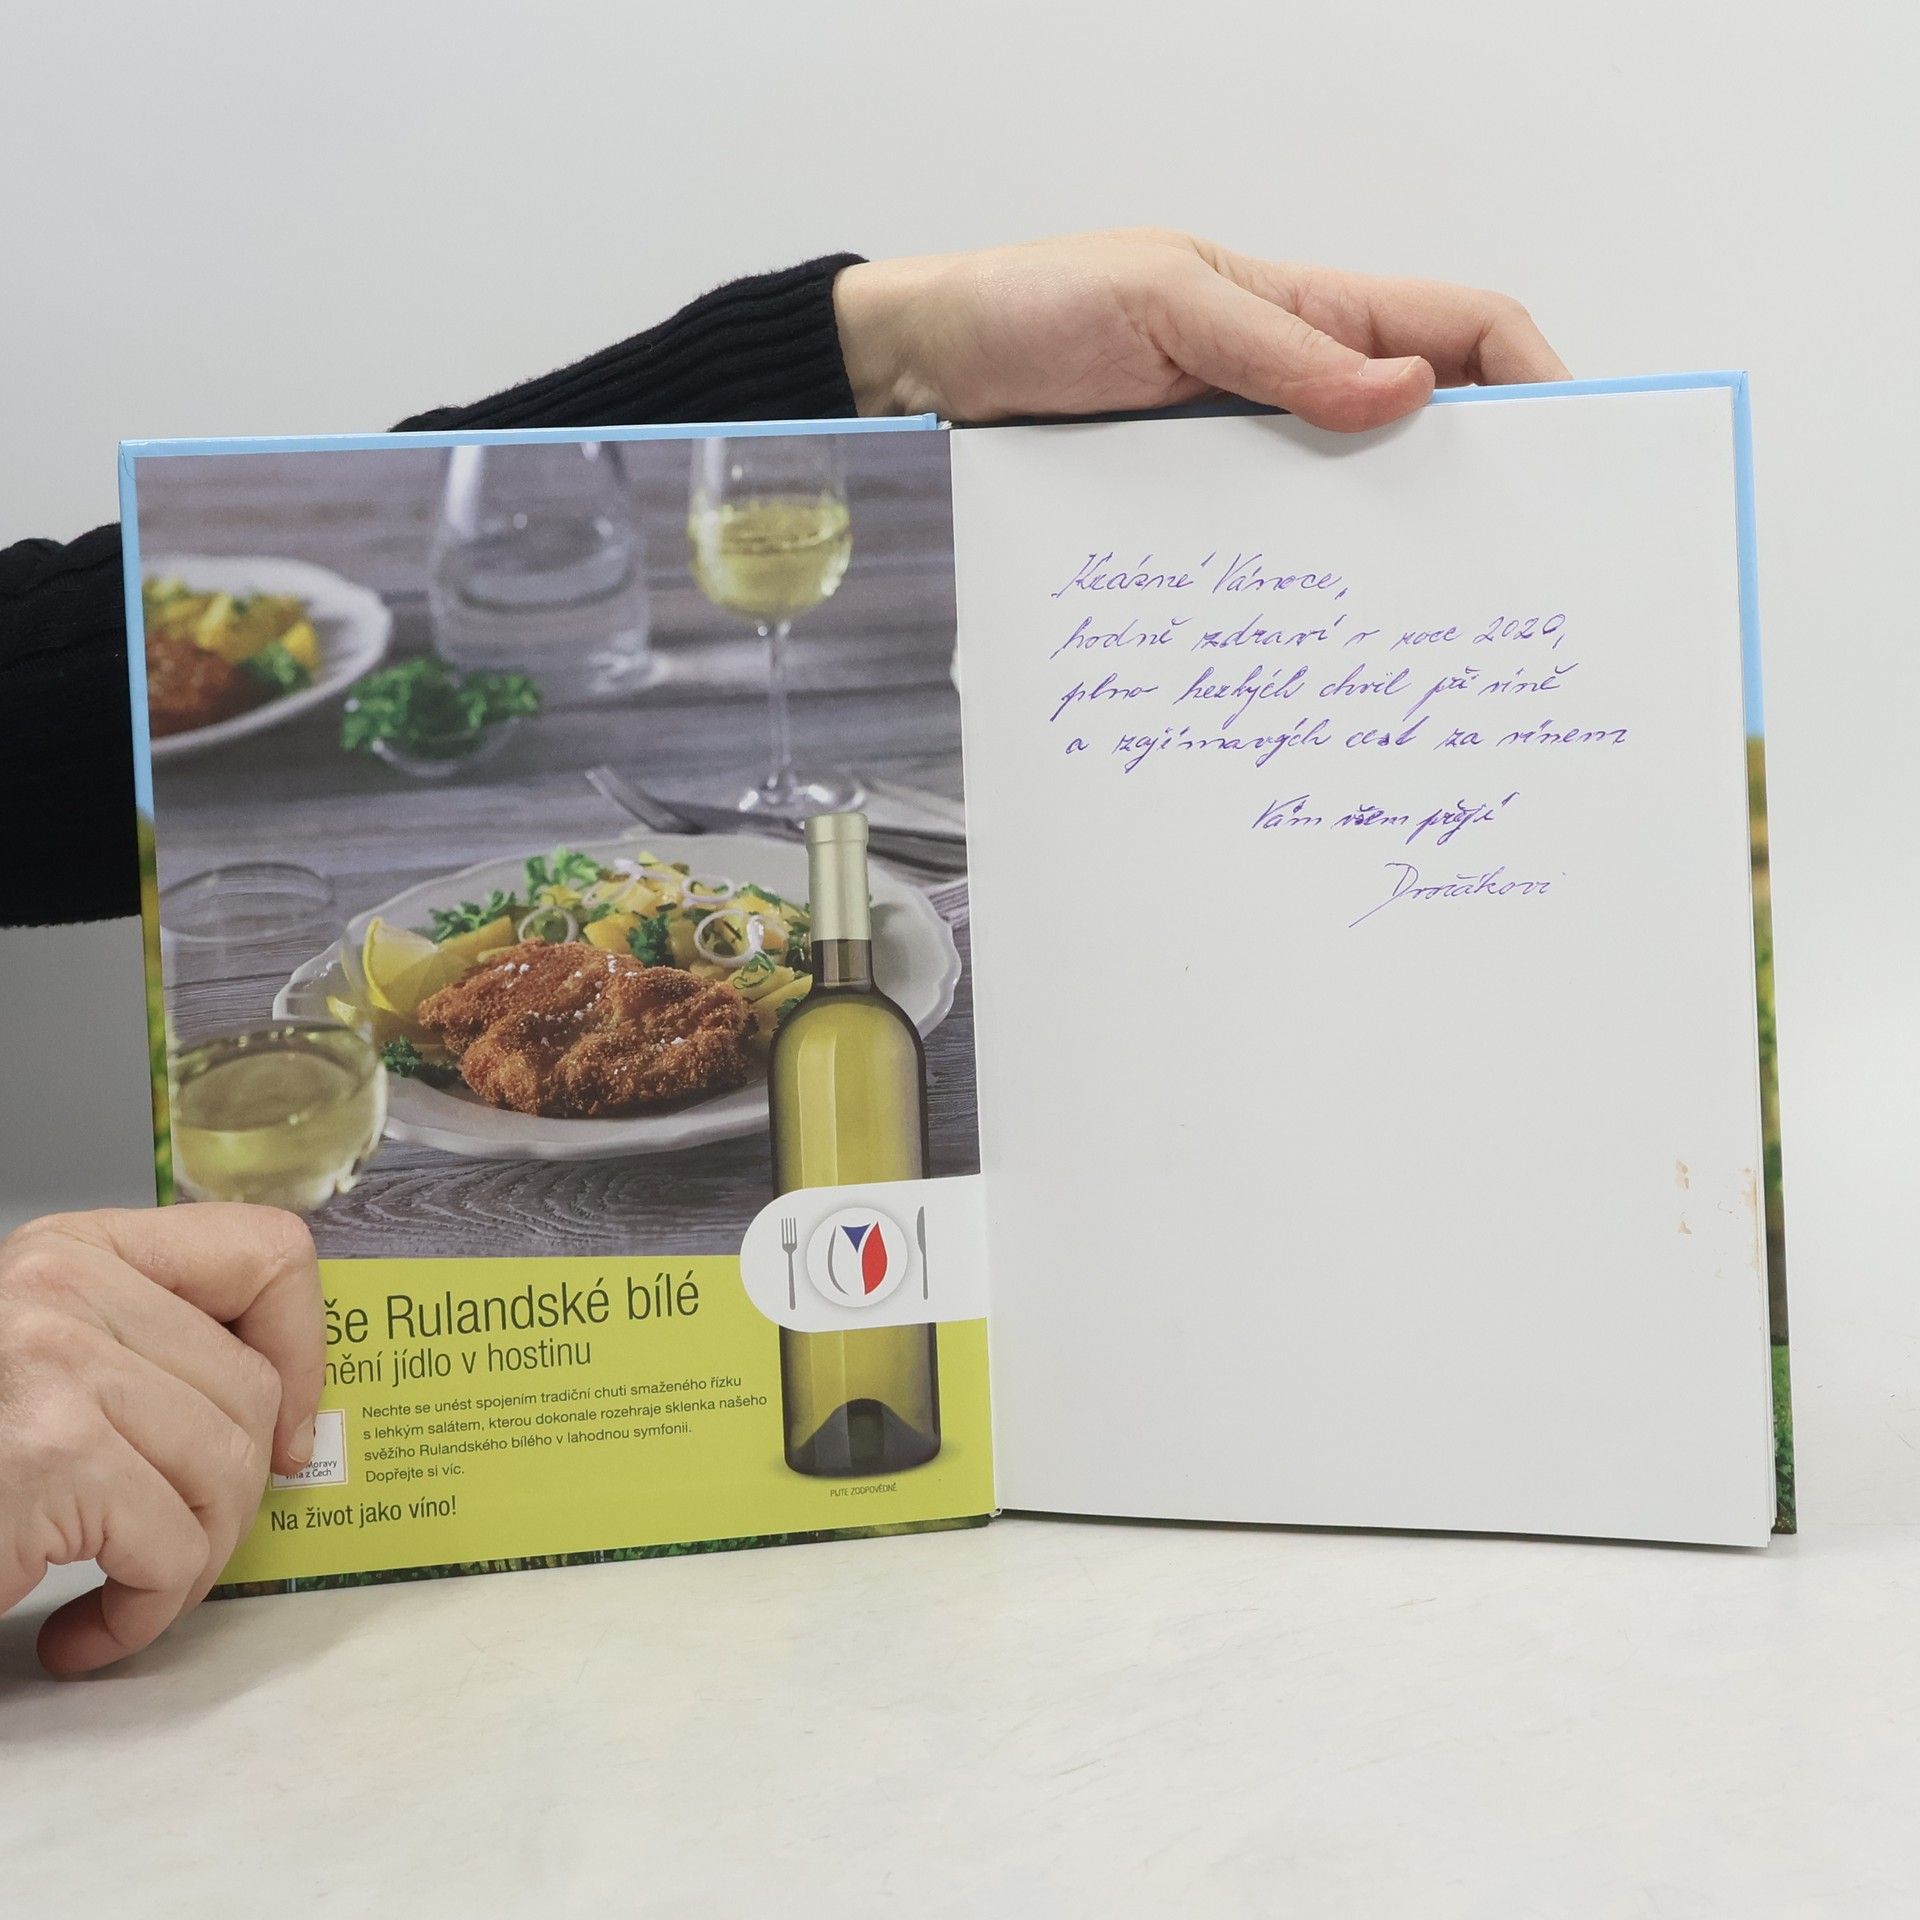 še Rulandské bílé
nění jídlo v hostinu
Nechte se unést spojením tradiční chuti smaženého řízku
s lehkým salátem, kterou dokonale rozehraje sklenka našeho
svěžího Rulandského bílého v lahodnou symfonii.
Dopřejte si víc.
Moravy
vína z Čech
Na život jako víno!
PIJTE ZODPOVĚDNĚ
Krásné Vánoce,
hodně zdraví v roce 2020,
plno hezkých chvil při víně
a zajímavých cest za vínem
Vám všem přejí
Dvořákovi